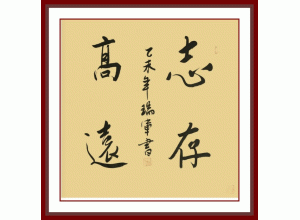 志存
高遠
乙未年瑞軍書